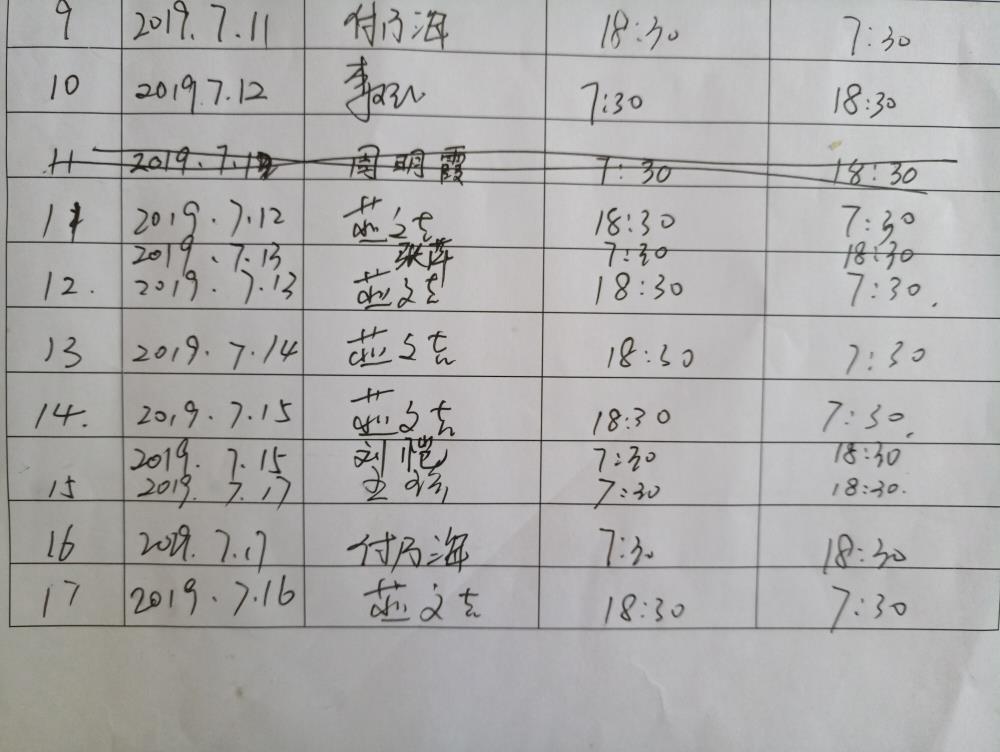 9 2019.7.11 付乃海 18:30 7:30
10 2019.7.12 李 7:30 18:30
11 2019.7.12 周明霞 7:30 18:30
11 2019.7.12 文志 18:30 7:30
2019.7.13 张萍 7:30 18:30
12. 2019.7.13 文志 18:30 7:30.
13 2019.7.14 文志 18:30 7:30
14. 2019.7.15 文志 18:30 7:30.
2019.7.15 刘恺 7:30 18:30
15 2019.7.17 王 7:30 18:30.
16 2019.7.17 付乃海 7:30 18:30
17 2019.7.16 文志 18:30 7:30